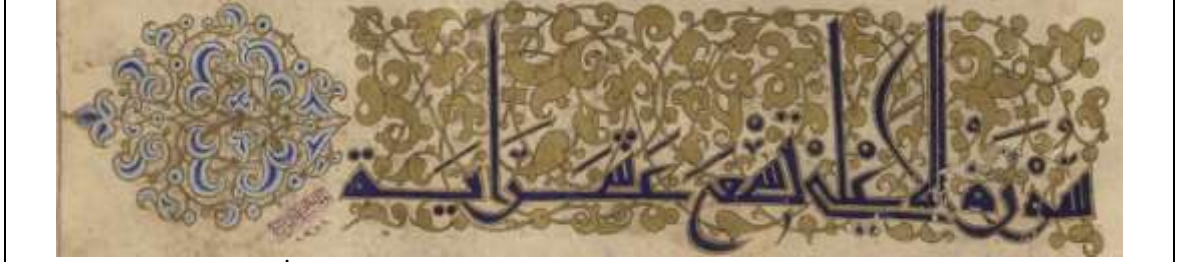 سُورَةُ الاعلى تسع عشر اية